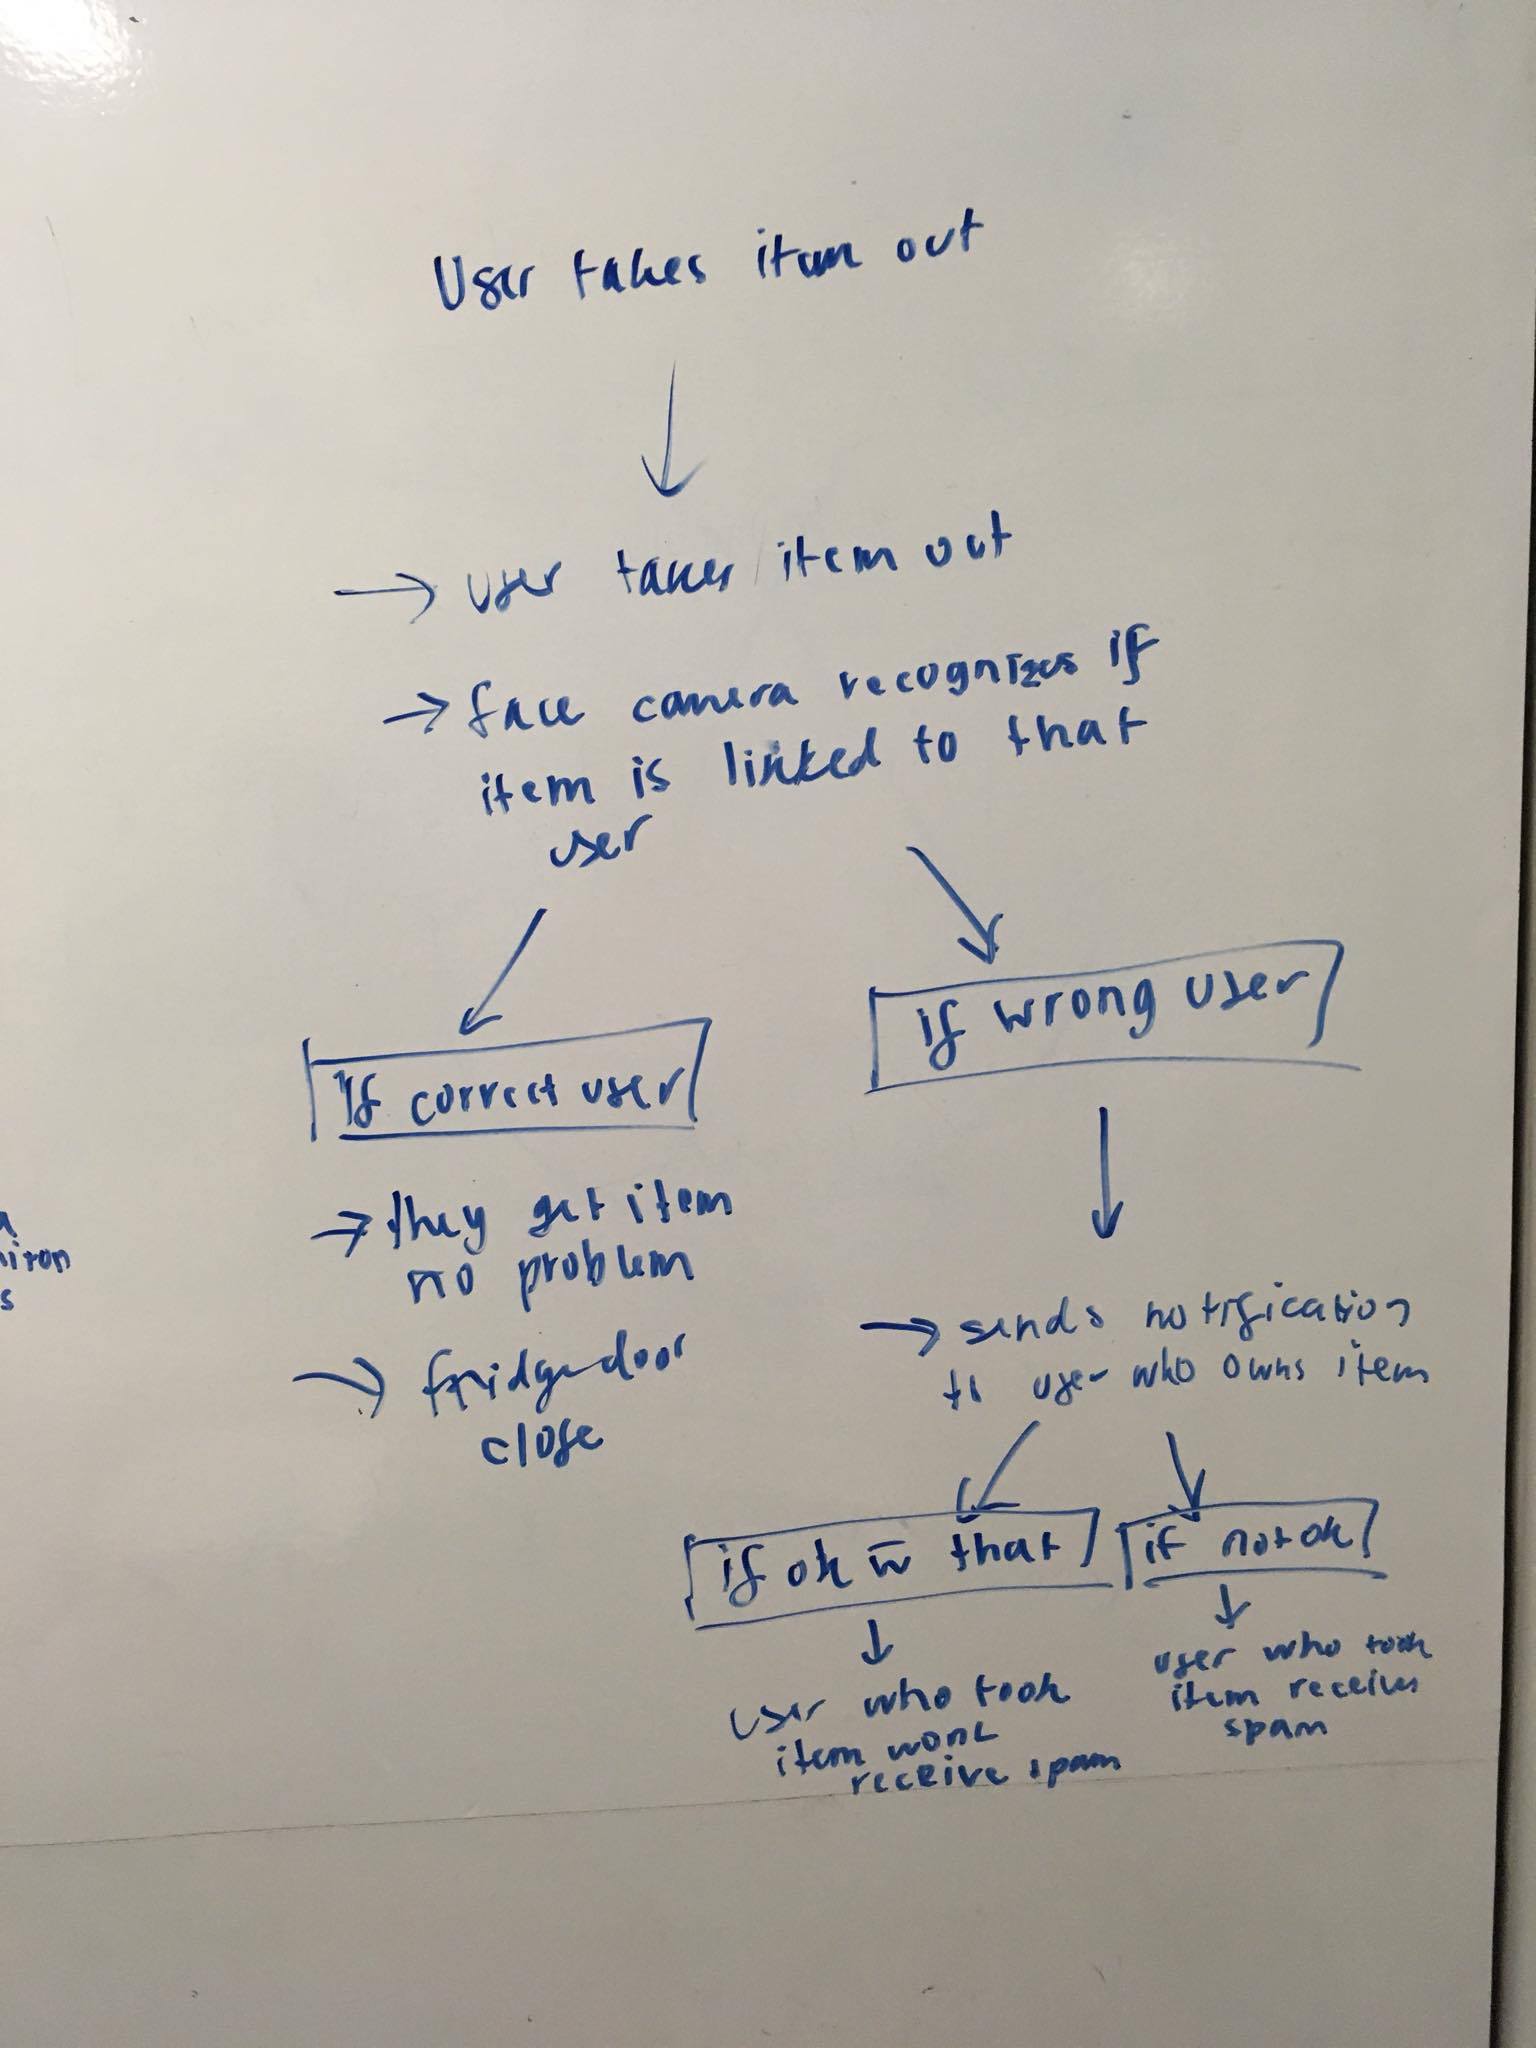 User takes item out
→ user takes item out
→ face camera recognizes if
item is linked to that
user
If correct user
if wrong user
→ they get item
no problem
→ fridge door
close
→ sends notification
to user who owns item
if ok w̄ that
if not ok
user who took
item wont
receive spam
user who took
item receives
spam